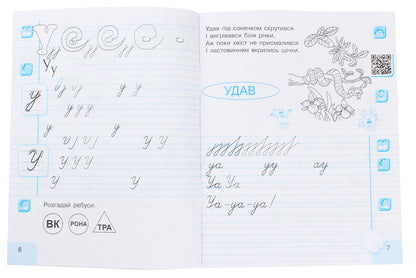 Уу
у у у у
у у
у у у
У У У У
У У У
У У У
Розгадай ребуси.
ВК РОНА ТРА
6
Удав під сонечком скрутився
і вигрівався біля річки,
Аж поки хвіст не присмалився
і ластовинням вкрились щічки.
УДАВ
уа уу ау
Уа Уа
Уа-уа-уа!
7